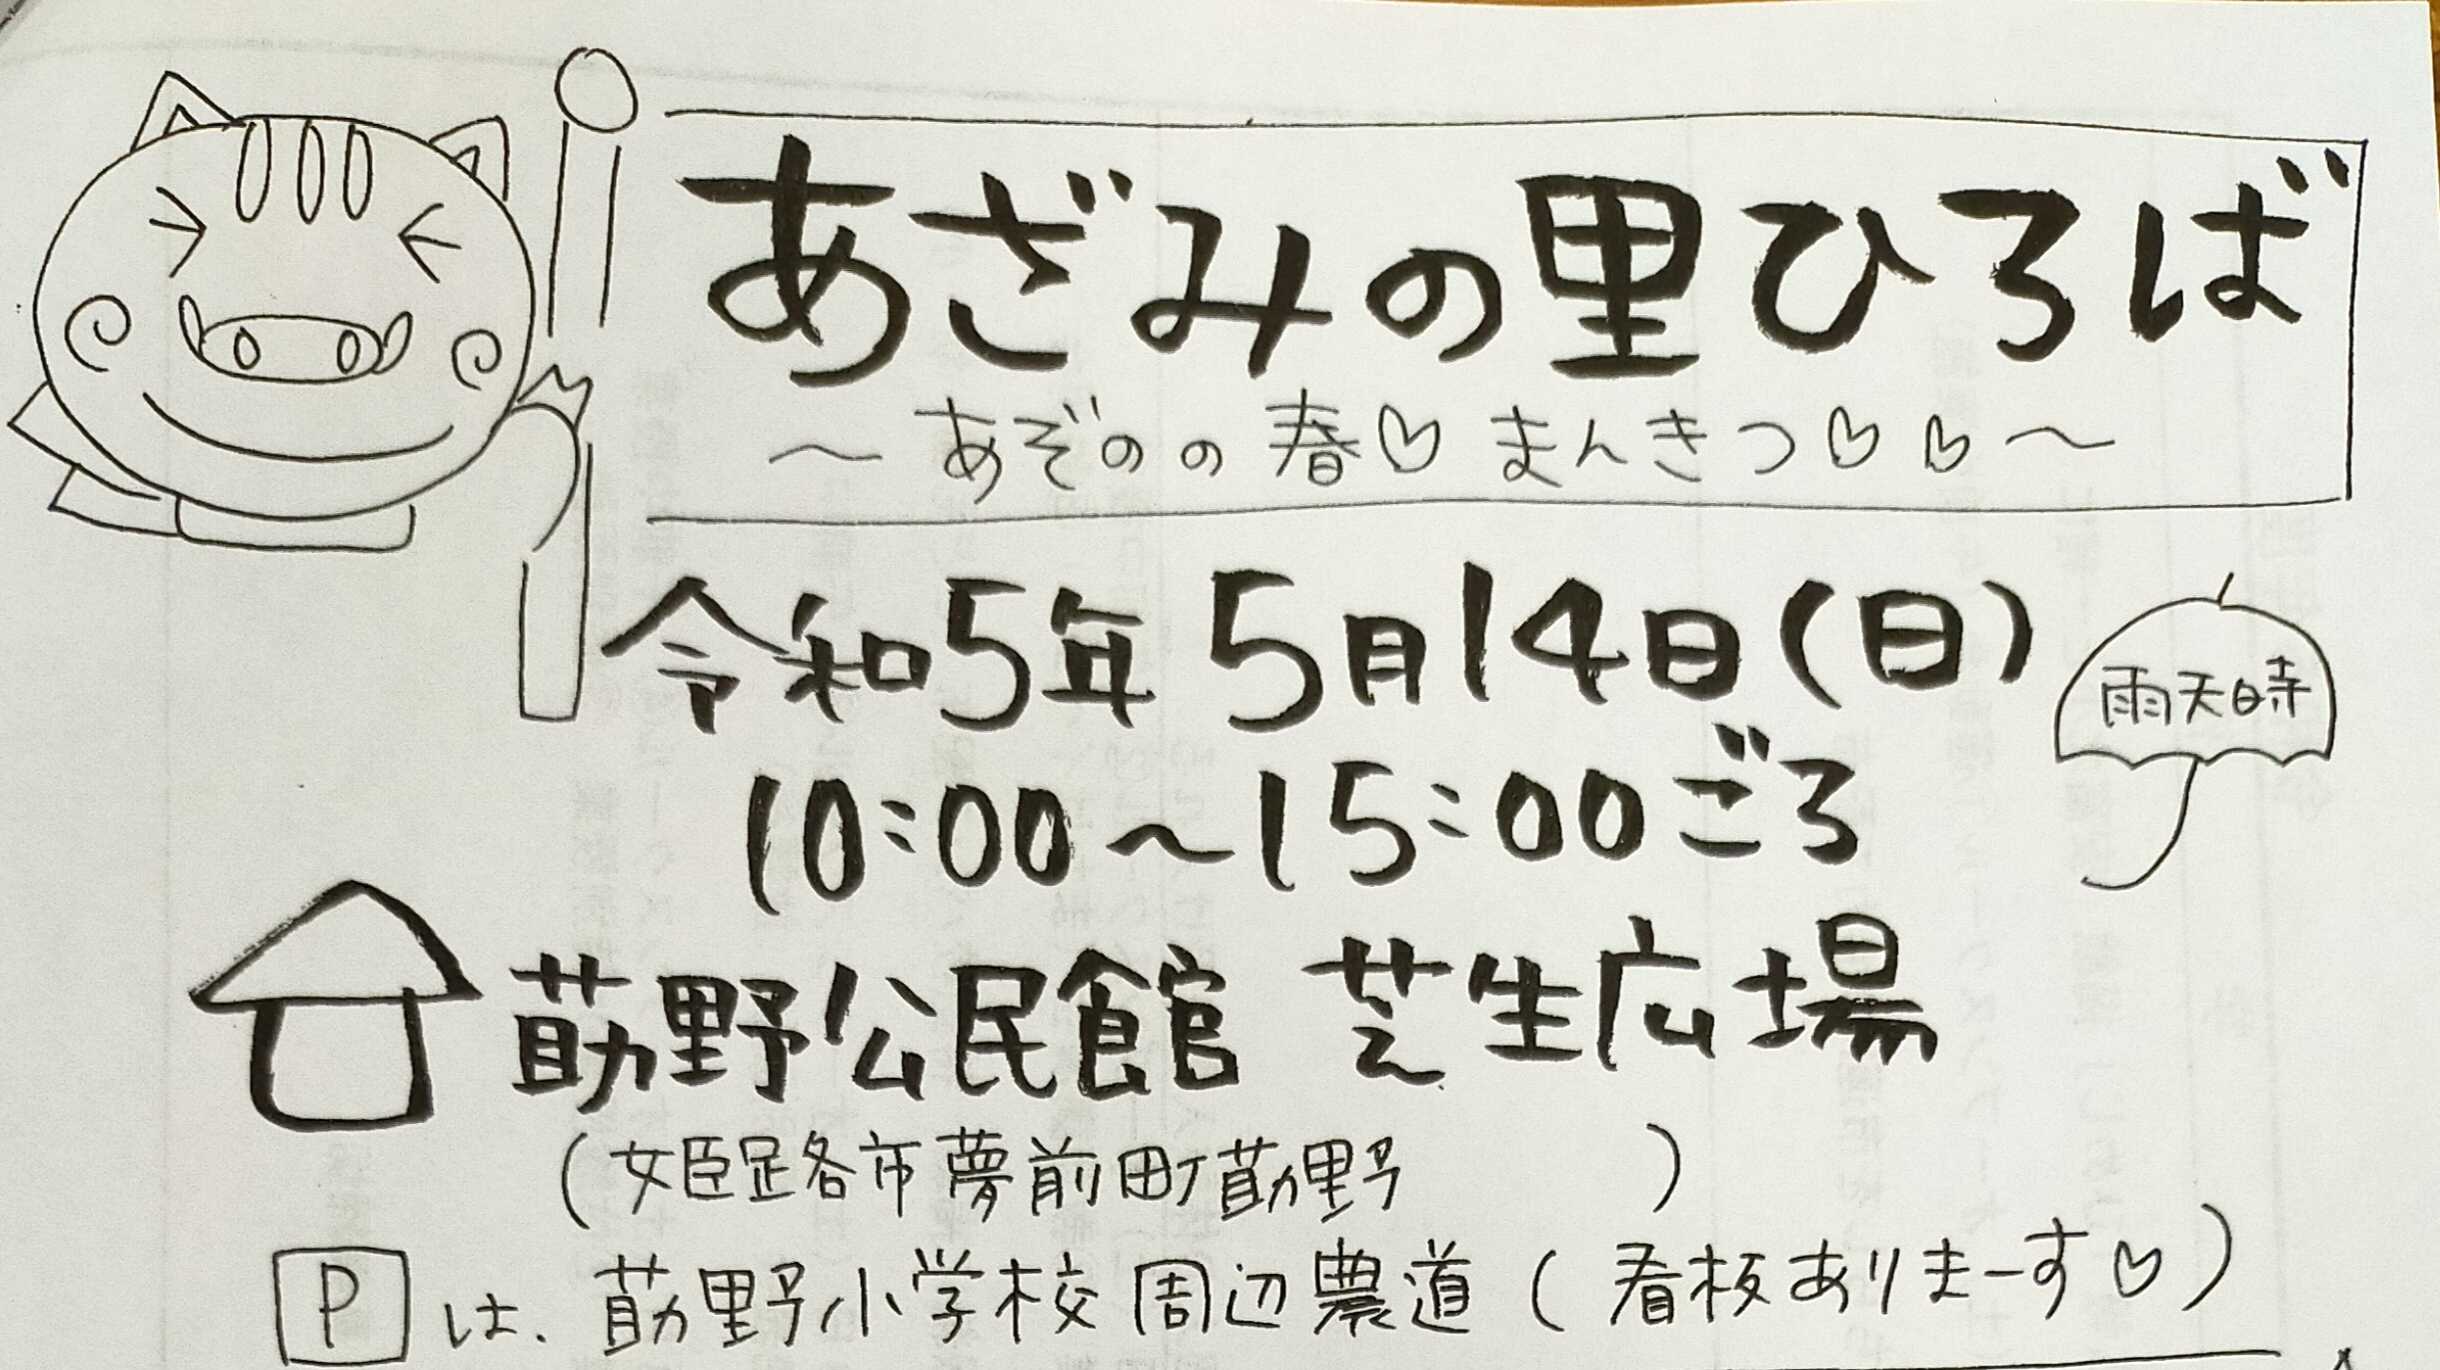 あざみの里ひろば
～あぞのの春♡まんきつ♡♡～
令和5年5月14日(日)
雨天時
10:00～15:00ごろ
莇野公民館 芝生広場
(姫路市夢前町莇野 )
Pは、莇野小学校周辺農道(看板ありまーす♡)